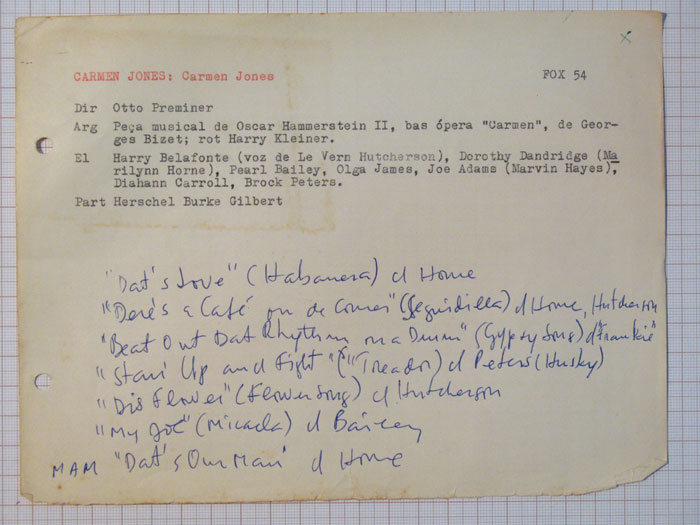 CARMEN JONES: Carmen Jones FOX 54
Dir Otto Preminer
Arg Peça musical de Oscar Hammerstein II, bas ópera "Carmen", de Geor-
ges Bizet; rot Harry Kleiner.
El Harry Belafonte (voz de Le Vern Hutcherson), Dorothy Dandridge (Ma
rilynn Horne), Pearl Bailey, Olga James, Joe Adams (Marvin Hayes),
Diahann Carroll, Brock Peters.
Part Herschel Burke Gilbert
"Dat's Love" (Habanera) d Horne
"Dere's a Café on de Corner" (Seguidilla) d Horne, Hutcherson
"Beat Out Dat Rhythm on a Drum" (Gypsy Song) d "Frankie"
"Stan' Up and Fight" ("Toreador) d Peters (Husky)
"Dis Flower" (Flower Song) d Hutcherson
"My Joe" (Micaela) d Bailey
MAM "Dat's Our Man" d Horne